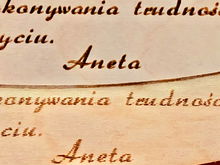 okonywania trudnośc
yciu.
Aneta
konywania trudnośc
yciu.
Aneta